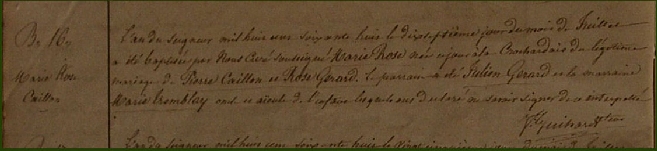 B. 16
Marie Rose
Caillon
L'an du seigneur mil huit cent soixante huit le dixseptième jour du mois de Juillet
a été baptisée par Nous Curé soussigné Marie Rose née ce jour à la du légitime
mariage de Pierre Caillon et Rose Gerard. Le parrain a été Julien Gerard et la marraine
Marie Tremblay ont et de l'enfant lesquels ont déclaré ne savoir signer de ce interpellé
L'an du seigneur mil huit cent soixante huit le